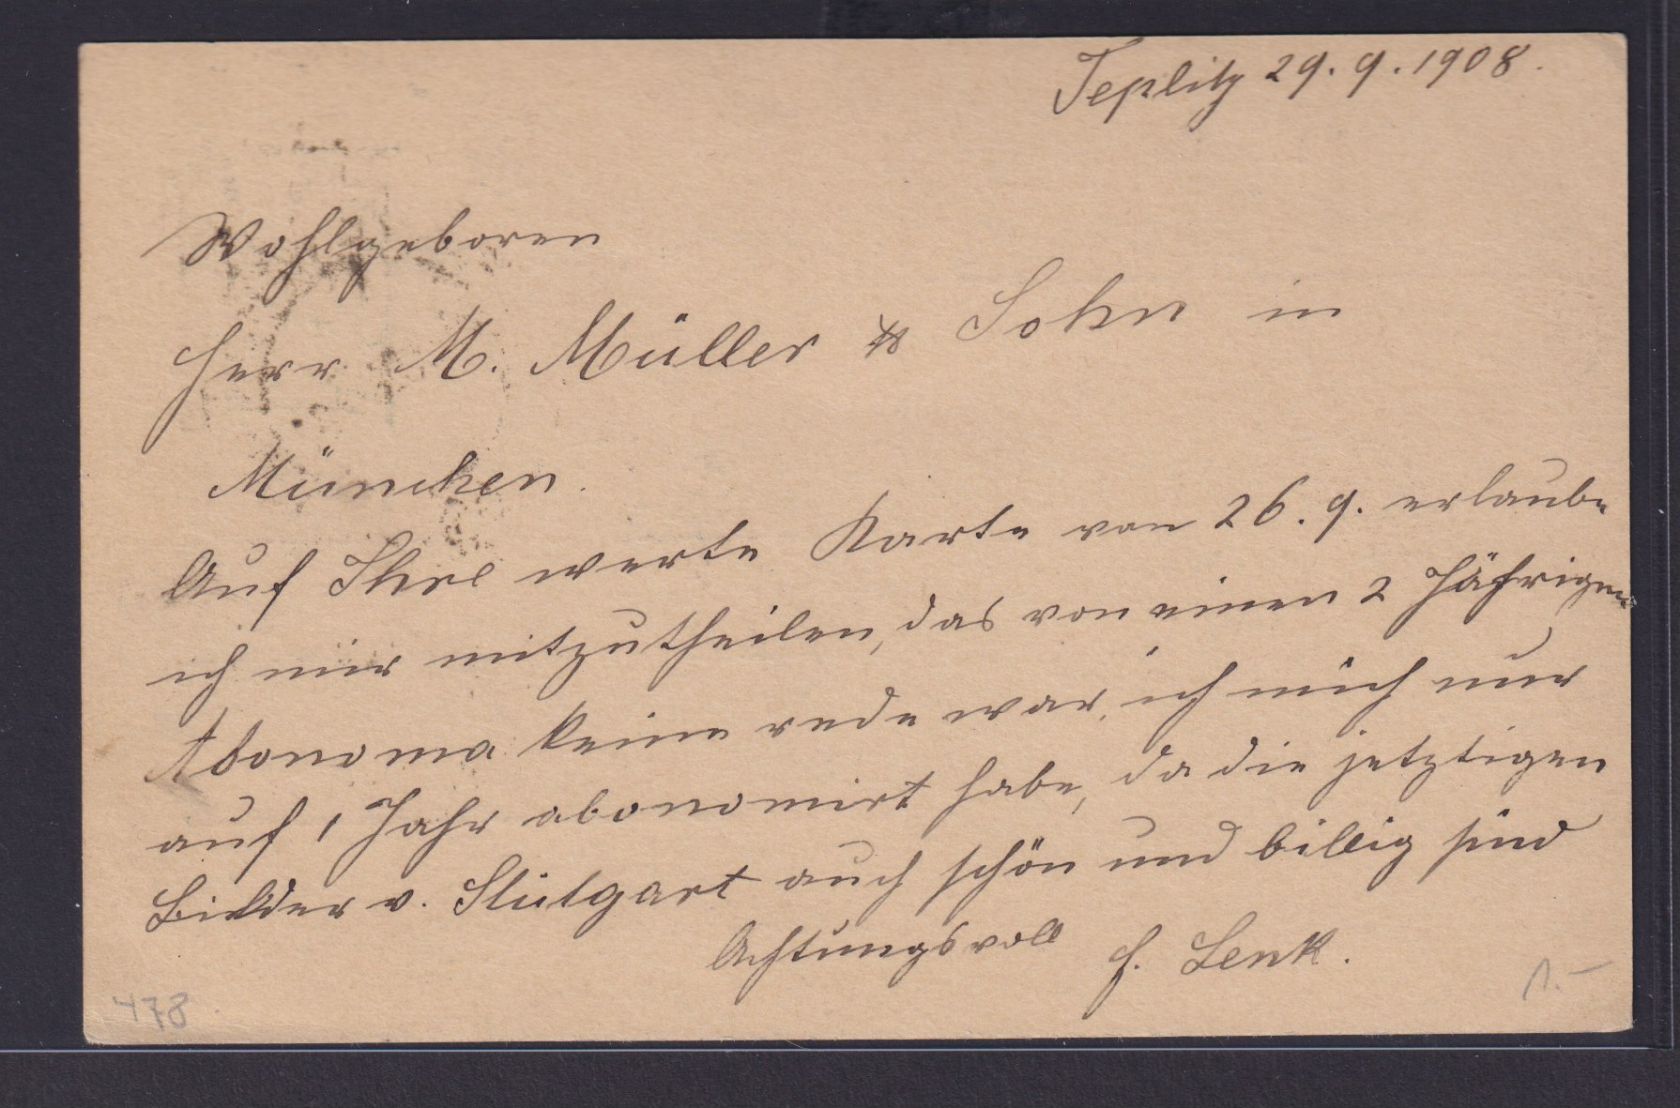 Teplitz 29.9.1908.
Wohlgeboren
Herr M. Müller & Sohn in
München.
Auf Ihre werte Karte von 26.9. erlaube
ich mir mitzutheilen, das von einen 2 Jährigen
Abonoma keine rede war, ich mich nur
auf 1 Jahr abonomirt habe, da die jetztigen
Bilder v. Stutgart auch schön und billig sind
Achtungsvoll H. Lenk.
478
1.–